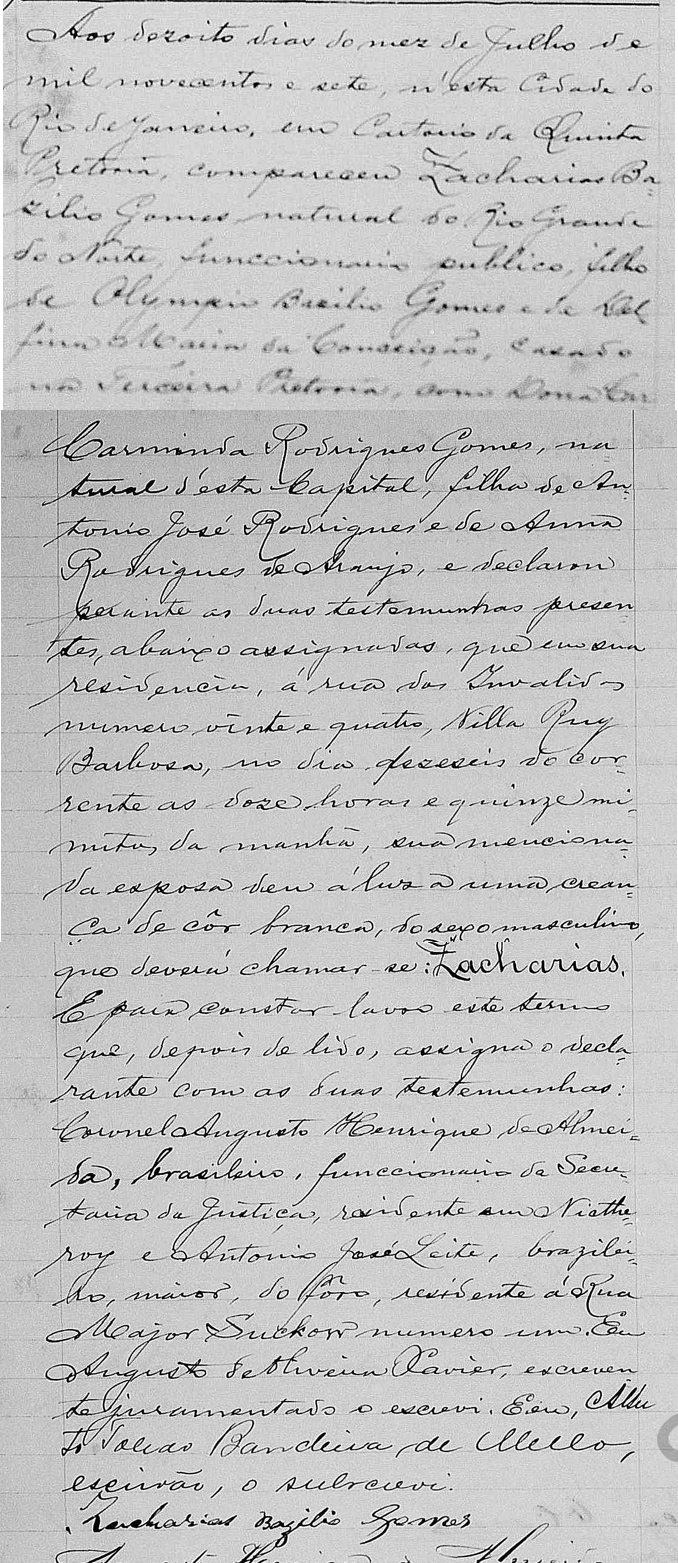 Aos dezoito dias do mez de Julho de
mil novecentos e sete, n'esta Cidade do
Rio de Janeiro, em Cartorio da Quinta
Pretoria, compareceu Zacharias Ba-
zilio Gomes natural do Rio Grande
do Norte, funccionario publico, filho
de Olympio Bazilio Gomes e de Del
fina Maria da Conceição, casado
na Terceira Pretoria, com Dona Car
Carminda Rodrigues Gomes, na
tural d'esta Capital, filha de An-
tonio José Rodrigues e de Anna
Rodrigues de Araujo, e declarou
perante as duas testemunhas presen-
tes, abaixo assignadas, que em sua
residencia, á rua dos Invalidos
numero vinte e quatro, Villa Ruy
Barbosa, no dia dezeseis do cor-
rente as doze horas e quinze mi-
nutos da manhã, sua menciona-
da esposa deu á luz a uma crean-
ça de côr branca, do sexo masculino,
que deverá chamar-se: "Zacharias.
E para constar lavro este termo
que, depois de lido, assigna o decla-
rante com as duas testemunhas:
Coronel Augusto Henrique de Almei-
da, brasileiro, funccionario da Secre-
taria da Justiça, residente em Nicthe-
roy e Antonio José Leite, brazilei-
ro, maior, do fôro, residente á Rua
Major Suckow numero um. Eu
Augusto de Oliveira Xavier, escreven
te juramentado o escrevi. E eu,
Toledo Bandeira de Mello,
escrivão, o subscrevi.
Zacharias Bazilio Gomes